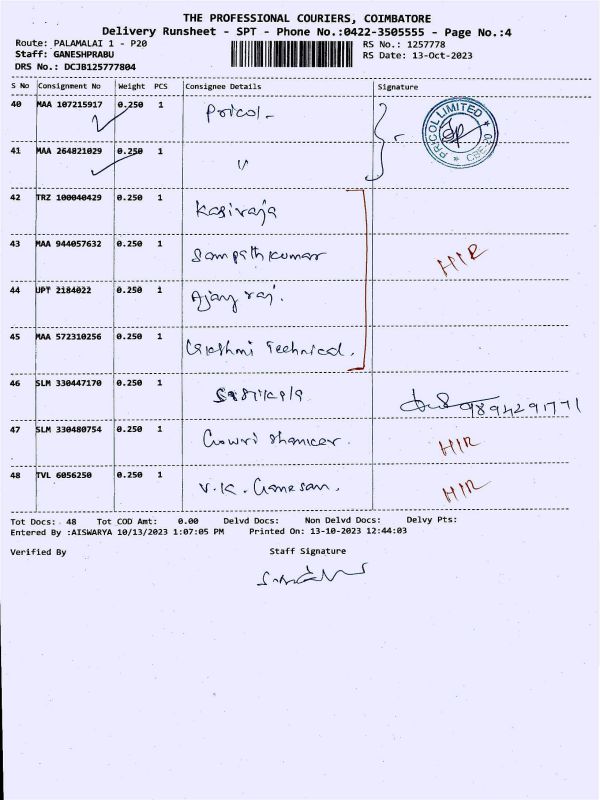 THE PROFESSIONAL COURIERS, COIMBATORE
Delivery Runsheet - SPT - Phone No.:0422-3505555 - Page No.:4
Route: PALAMALAI 1 - P20
Staff: GANESHPRABU
DRS No.: DCJB125777804
RS No.: 1257778
RS Date: 13-Oct-2023
S No Consignment No Weight PCS Consignee Details Signature
40 MAA 107215917 0.250 1 Pricol -
PRICOL LIMITED
41 MAA 264821029 0.250 1 "
42 TRZ 100040429 0.250 1 Kasiraja
43 MAA 944057632 0.250 1 Sampathkumar HIR
44 UPT 2184022 0.250 1 Ajay raj.
45 MAA 572310256 0.250 1 Lakshmi Technical.
46 SLM 330447170 0.250 1 9894291771
47 SLM 330480754 0.250 1 Gowri Shanker. HIR
48 TVL 6056250 0.250 1 V.K. Ganesan. HIR
Tot Docs: 48 Tot COD Amt: 0.00 Delvd Docs: Non Delvd Docs: Delvy Pts:
Entered By :AISWARYA 10/13/2023 1:07:05 PM Printed On: 13-10-2023 12:44:03
Verified By Staff Signature